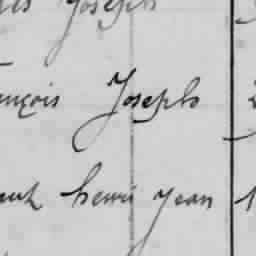 Joseph
ançois Joseph
henri Jean